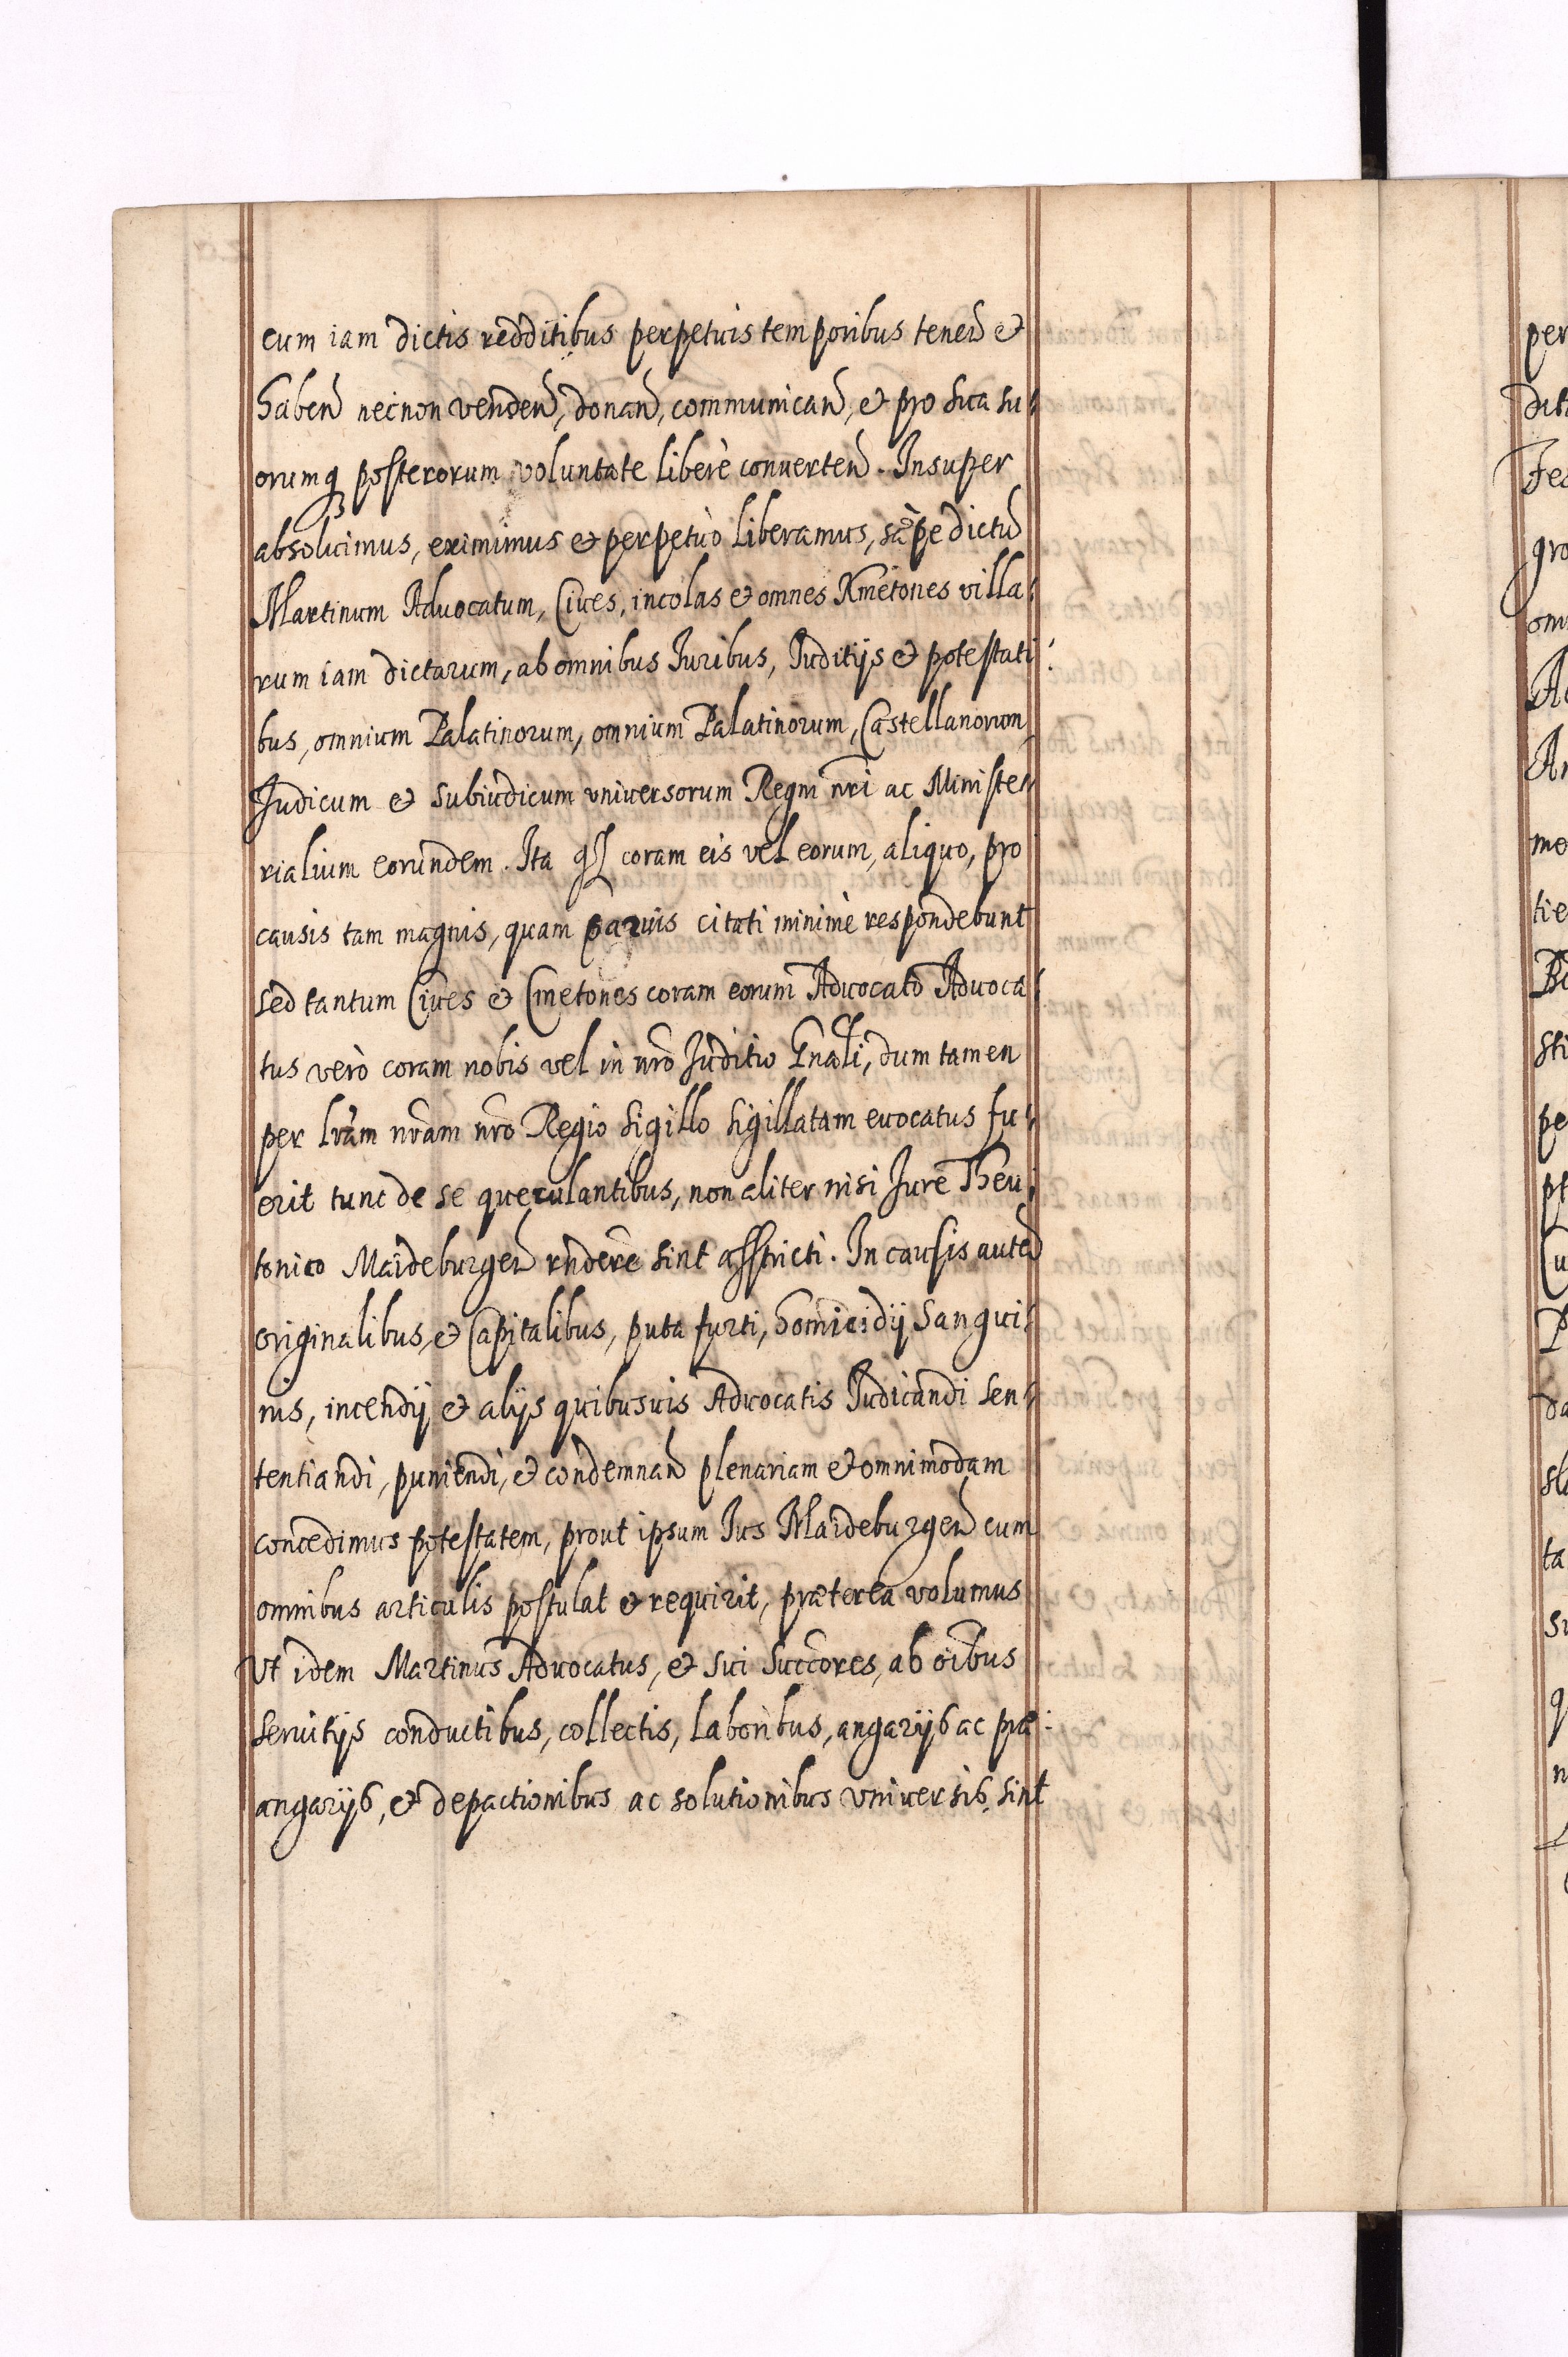 cum iam dictis redditibus perpetuis temporibus teneñ et
habeñ necnon vendeñ, donañ, communicañ, et pro sua su-
orumq posterorum voluntate liberè converteñ. Insuper
absoluimus, eximimus et perpetuò liberamus, sæpe dictũ
Martinum Advocatum, Ciues, incolas et omnes Kmetones villa-
rum iam dictarum, ab omnibus Iuribus, Iuditijs et potestati-
bus, omnium Palatinorum, omnium Palatinorum, Castellanorum
Judicum et subiudicum vniuersorum Regni nr̃i ac Ministe-
rialium eorundem. Ita qđ coram eis vel eorum, aliquo, pro
causis tam magnis, quam paruis citati minimè respondebunt
sed tantum Ciues et Cmetones coram eorum Advocato Advoca-
tus verò coram nobis vel in nr̃o Iuditio Gñali, dum tamen
per lr̃am nr̃am nr̃o Regio sigillo sigillatam euocatus fu-
erit tunc de se querulantibus, non aliter nisi Iure Theu-
tonico Maideburgeñ rñdere sint asstricti. In causis autẽ
originalibus, et Capitalibus, puta furti, homicidij Sangui-
nis, incendij et alijs quibusuis Aduocatis Judicandi sen-
tentiandi, puniendi, et condemnañ plenariam et omnimodam
concedimus potestatem, prout ipsum Ius Maideburgeñ cum
omnibus articulis postulat et requirit, præterea volumus
Vt idem Martinus Advocatus, et sui succõres, ab oĩbus
seruitijs conductibus, collectis, laboribus, angarijs ac præ-
angarijs, et depactionibus ac solutionibus vniuersis, sint